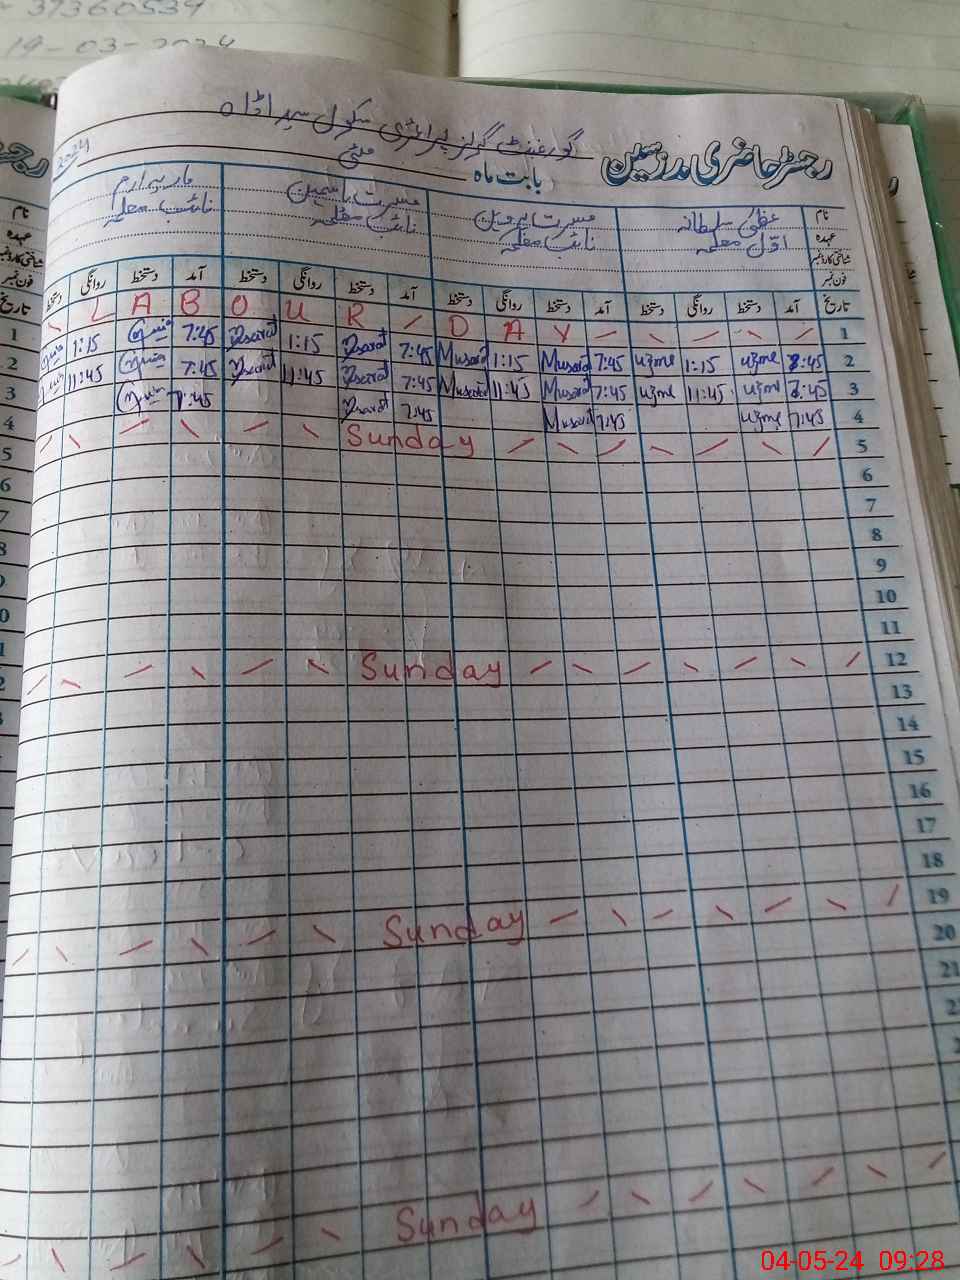 37360534
19-03-2024
گورنمنٹ گرلز پرائمری سکول
رجسٹر حاضری مدرسین
بابت ماہ مئی
2024
نام عظمیٰ سلطانہ مسرت پروین مسرت یاسمین ماریہ ارم
عہدہ اوّل معلمہ نائب معلمہ نائب معلمہ نائب معلمہ
شناختی کارڈ نمبر
فون نمبر
تاریخ آمد دستخط روانگی دستخط آمد دستخط روانگی دستخط آمد دستخط روانگی دستخط آمد دستخط روانگی دستخط
L A B O U R / D A Y 1
1:15 7:45 1:15 7:45 Musarat 1:15 Musarat 7:45 uzme 1:15 uzme 7:45 2
11:45 7:45 11:45 7:45 Musarat 11:45 Musarat 7:45 uzme 11:45 uzme 7:45 3
7:45 7:45 Musarat 7:45 uzme 7:45 4
Sunday 5
6
7
8
9
10
11
Sunday 12
13
14
15
16
17
18
Sunday 19
20
21
Sunday
04-05-24 09:28